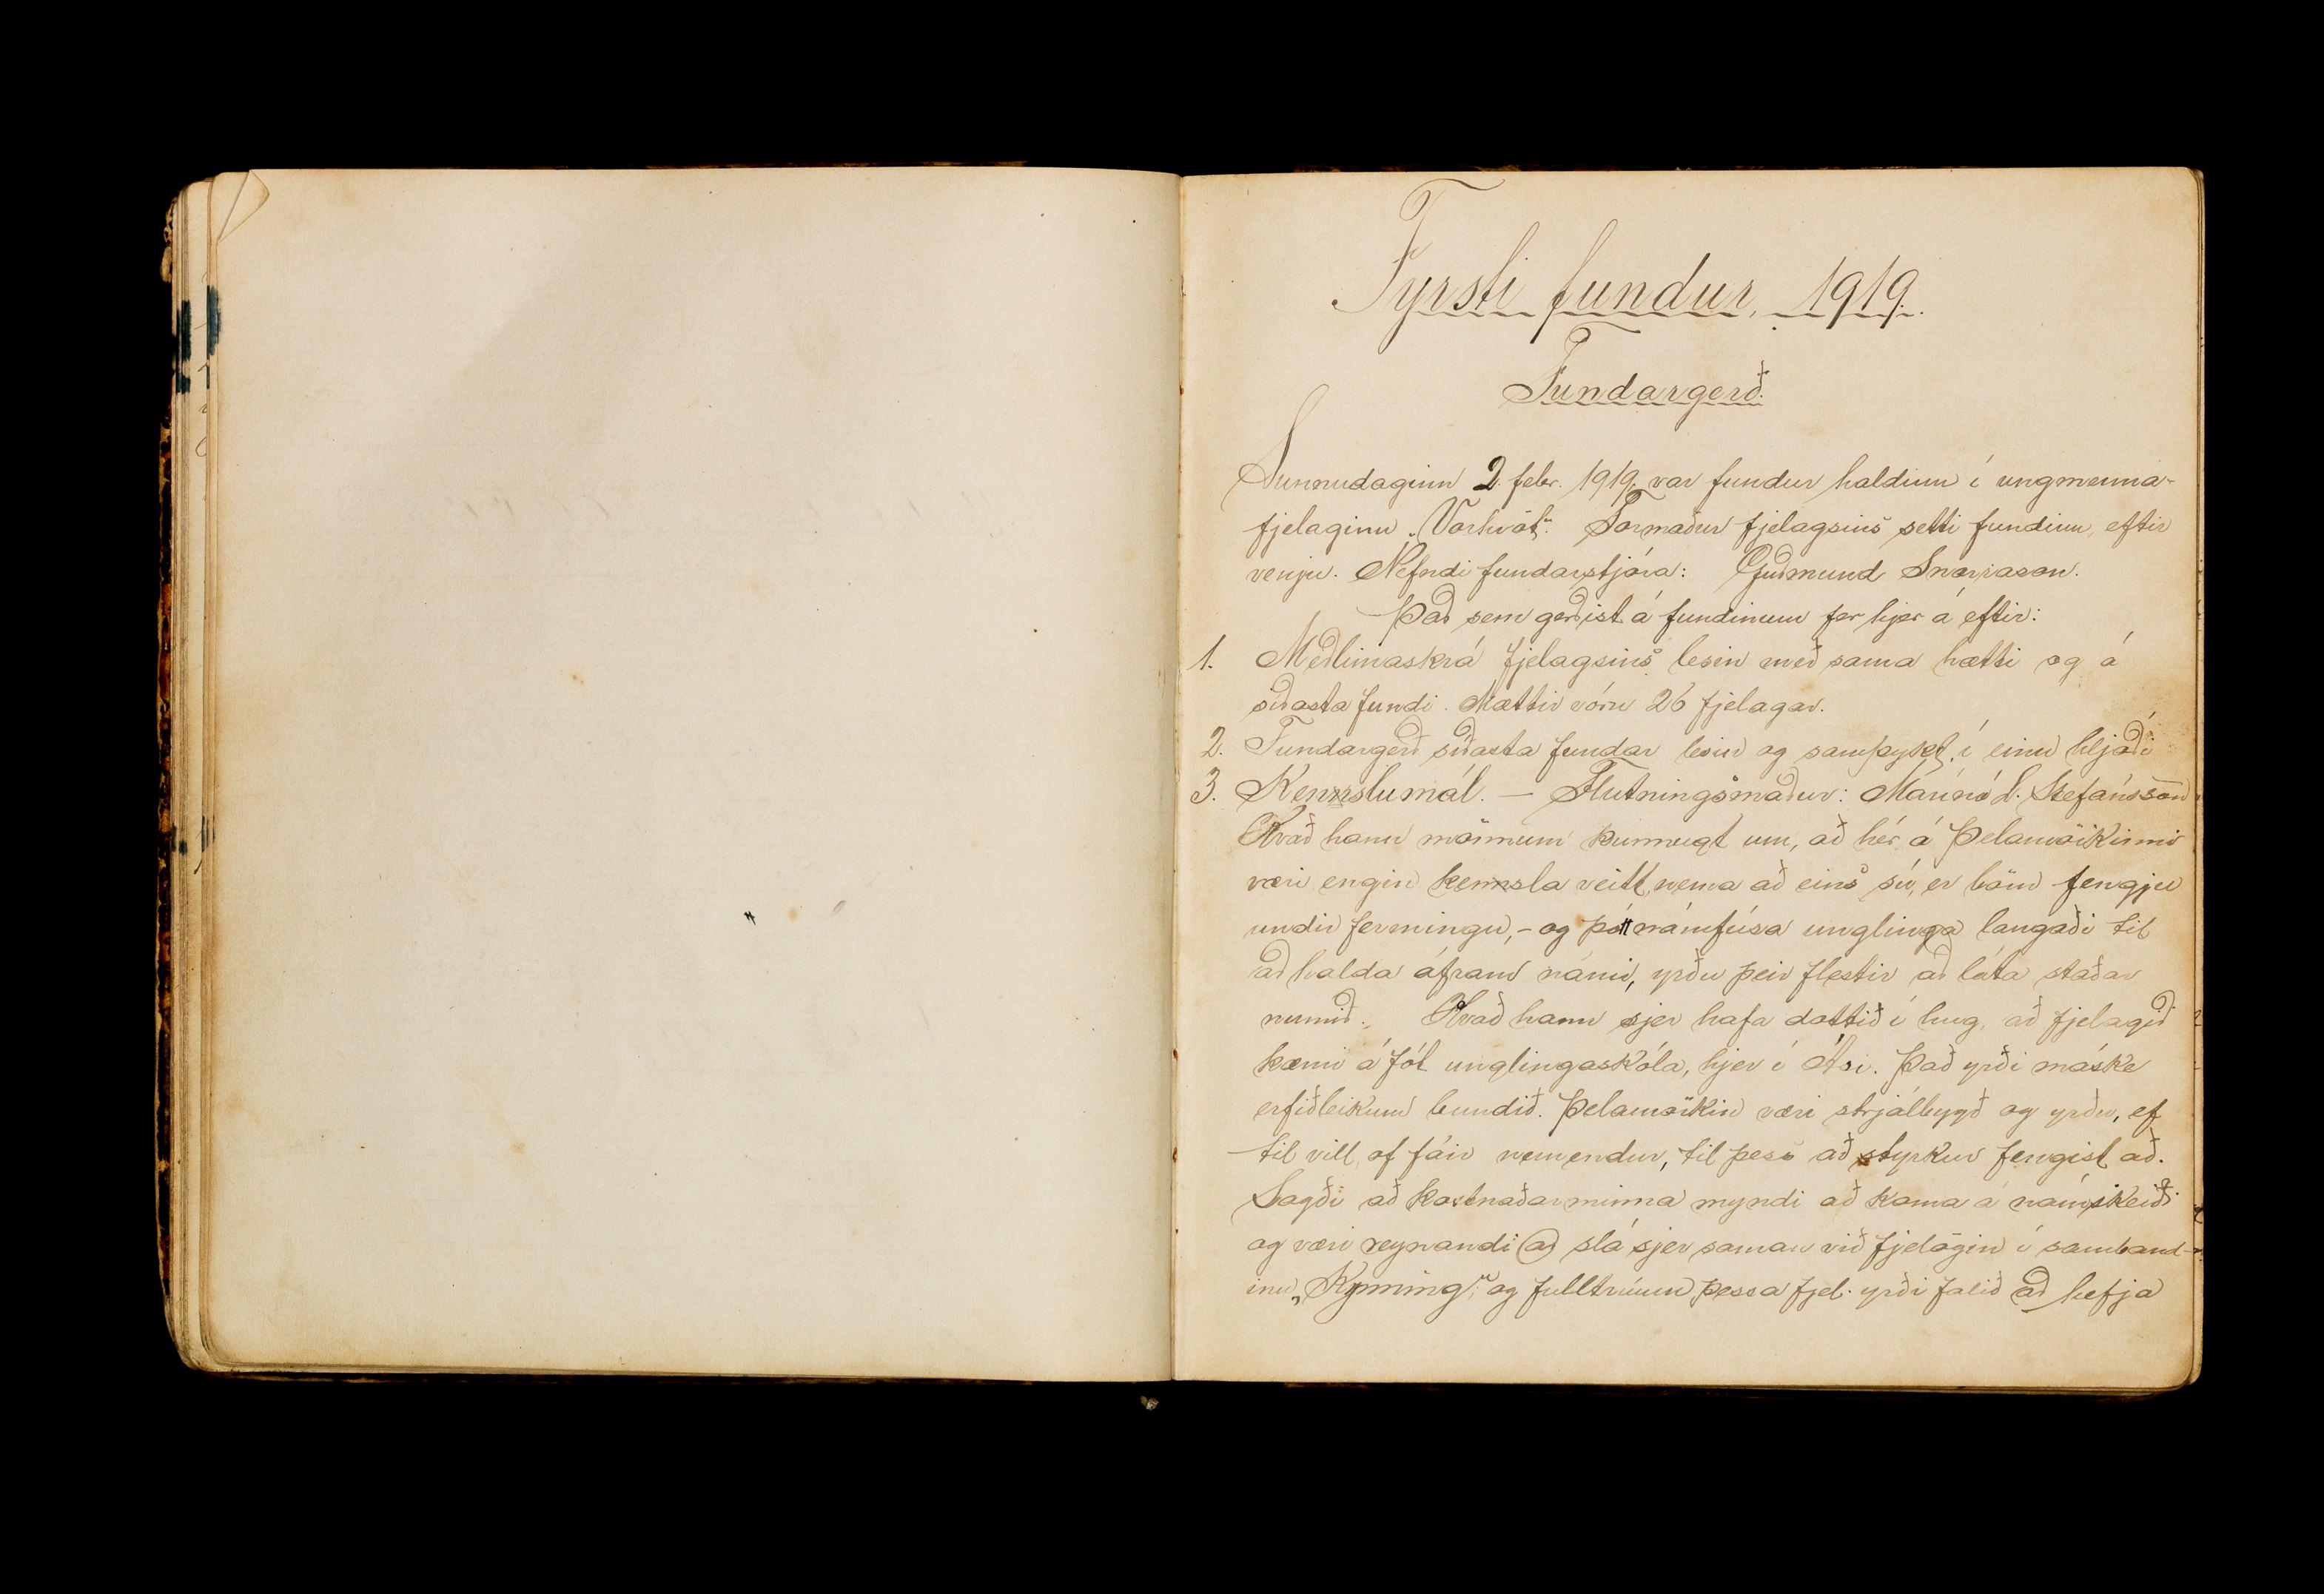 Fyrsti fundur, 1919.
Fundargerð.
Sunnudaginn 2. febr. 1919, var fundur haldinn í ungmenna-
fjelaginu „Vorhvöt“. Formaður fjelagsins setti fundinn, eftir
venju. Nefndi fundarstjóra: Guðmund Snorrason.
Það sem gerðist á fundinum fer hjer á eftir:
1. Meðlimaskrá fjelagsins lesin með sama hætti og á
síðasta fundi. Mættir vóru 26 fjelagar.
2. Fundargerð síðasta fundar lesin og samþykt í einu hljóði
3. Kennslumál. — Flutningsmaður: Márínó L. Stefánsson
Kvað hann mönnum kunnugt um, að hér á Þelamörkinni
væri engin kennsla veitt, nema að eins sú, er börn fengju
undir fermingu, - og þótt námfúsa unglinga langaði til
að halda áfram námi, yrðu þeir flestir að láta staðar
numið. Kvað hann sjer hafa dottið í hug, að fjelagið
kæmi á fót unglingaskóla, hjer í Ási. Það yrði máske
erfiðleikum bundið. Þelamörkin væri strjálbygð og yrðu, ef
til vill of fáir nemendur, til þess að styrkur fengist að.
Sagði að kostnaðarminna myndi að koma á námskeiði
og væri reynandi að slá sjer saman við fjelögin í samband-
inu „Kynning“, og fulltrúum þessa fjel. yrði falið að hefja